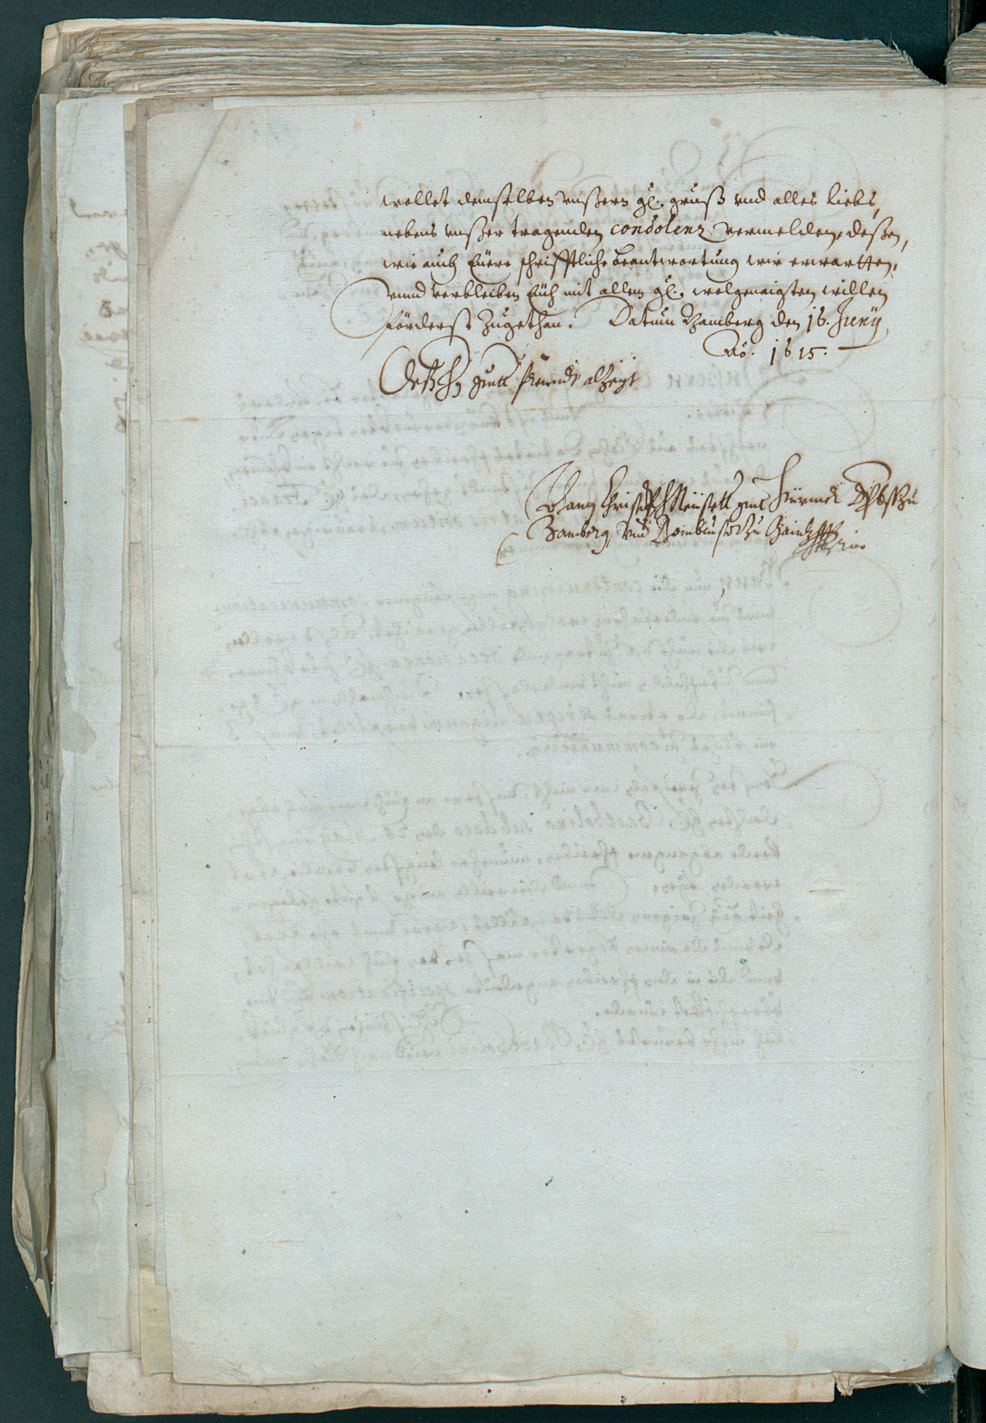 wollet demselben unsern gl. gruß und alles liebs,
nebens unser tragenden condolenz vermelden, deßen,
wie auch Euere schrifftliche beantworttung wir erwartten,
unnd verbleiben Euch mit allem gl. wolgenaigten willen
förderst zugethan. Datum Bamberg den 16. Juny
Aō. 1615.
gutt freundt alzeyt
Hans Christoff Neustetter gnant Stürmer Dhombbrobst zu
Bamberg und Dombcustor zu Maintz